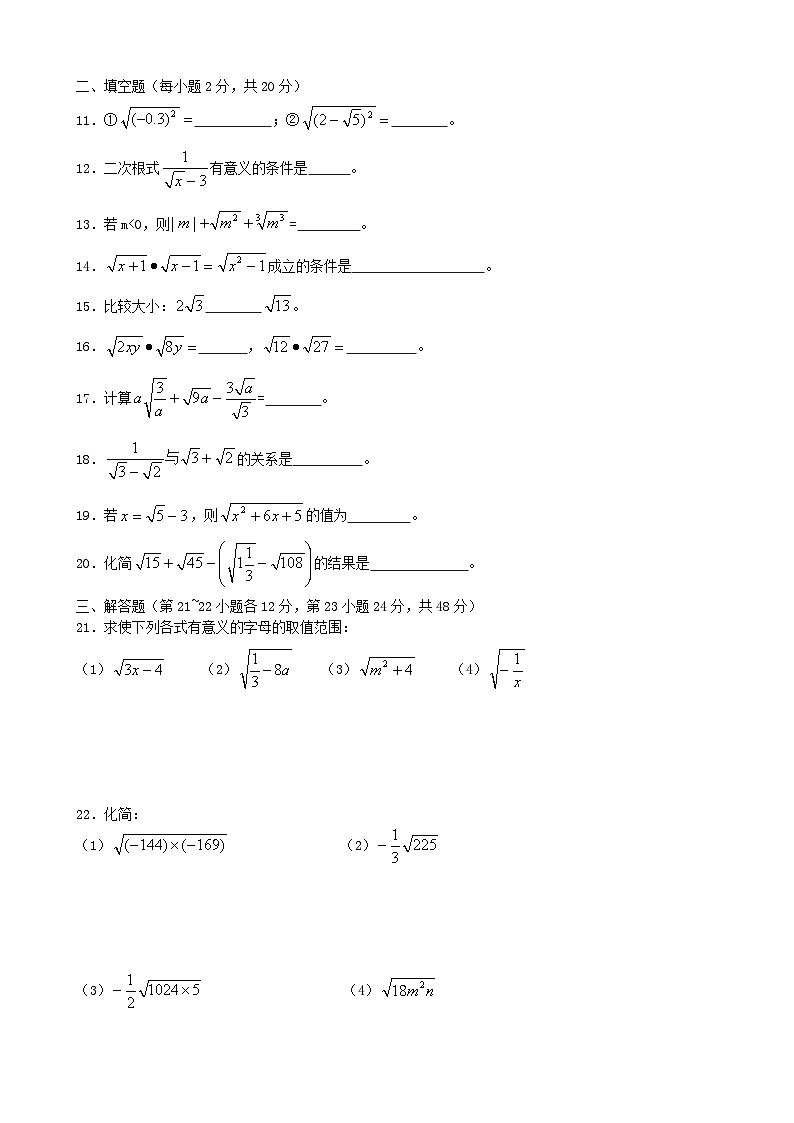 二、填空题(每小题2分,共20分)
11.①√((−0.3)²) =___________;②√((2−√5)²) =________。
12.二次根式 1/(√x−3) 有意义的条件是______。
13.若m<0,则|m|+√(m²)+∛(m³)=_________。
14.√(x+1)•√(x−1)=√(x²−1)成立的条件是___________________。
15.比较大小:2√3________√13。
16.√(2xy)•√(8y)=_______,√12•√27=__________。
17.计算a√(3/a)+√(9a)−(3√a)/√3=________。
18.1/(√3−√2)与√3+√2的关系是__________。
19.若x=√5−3,则√(x²+6x+5)的值为_________。
20.化简√15+√45−(√(1 1/3)−√108)的结果是______________。
三、解答题(第21~22小题各12分,第23小题24分,共48分)
21.求使下列各式有意义的字母的取值范围:
(1)√(3x−4) (2)√(1/3−8a) (3)√(m²+4) (4)√(−1/x)
22.化简:
(1)√((−144)×(−169)) (2)−1/3√225
(3)−1/2√(1024×5) (4)√(18m²n)